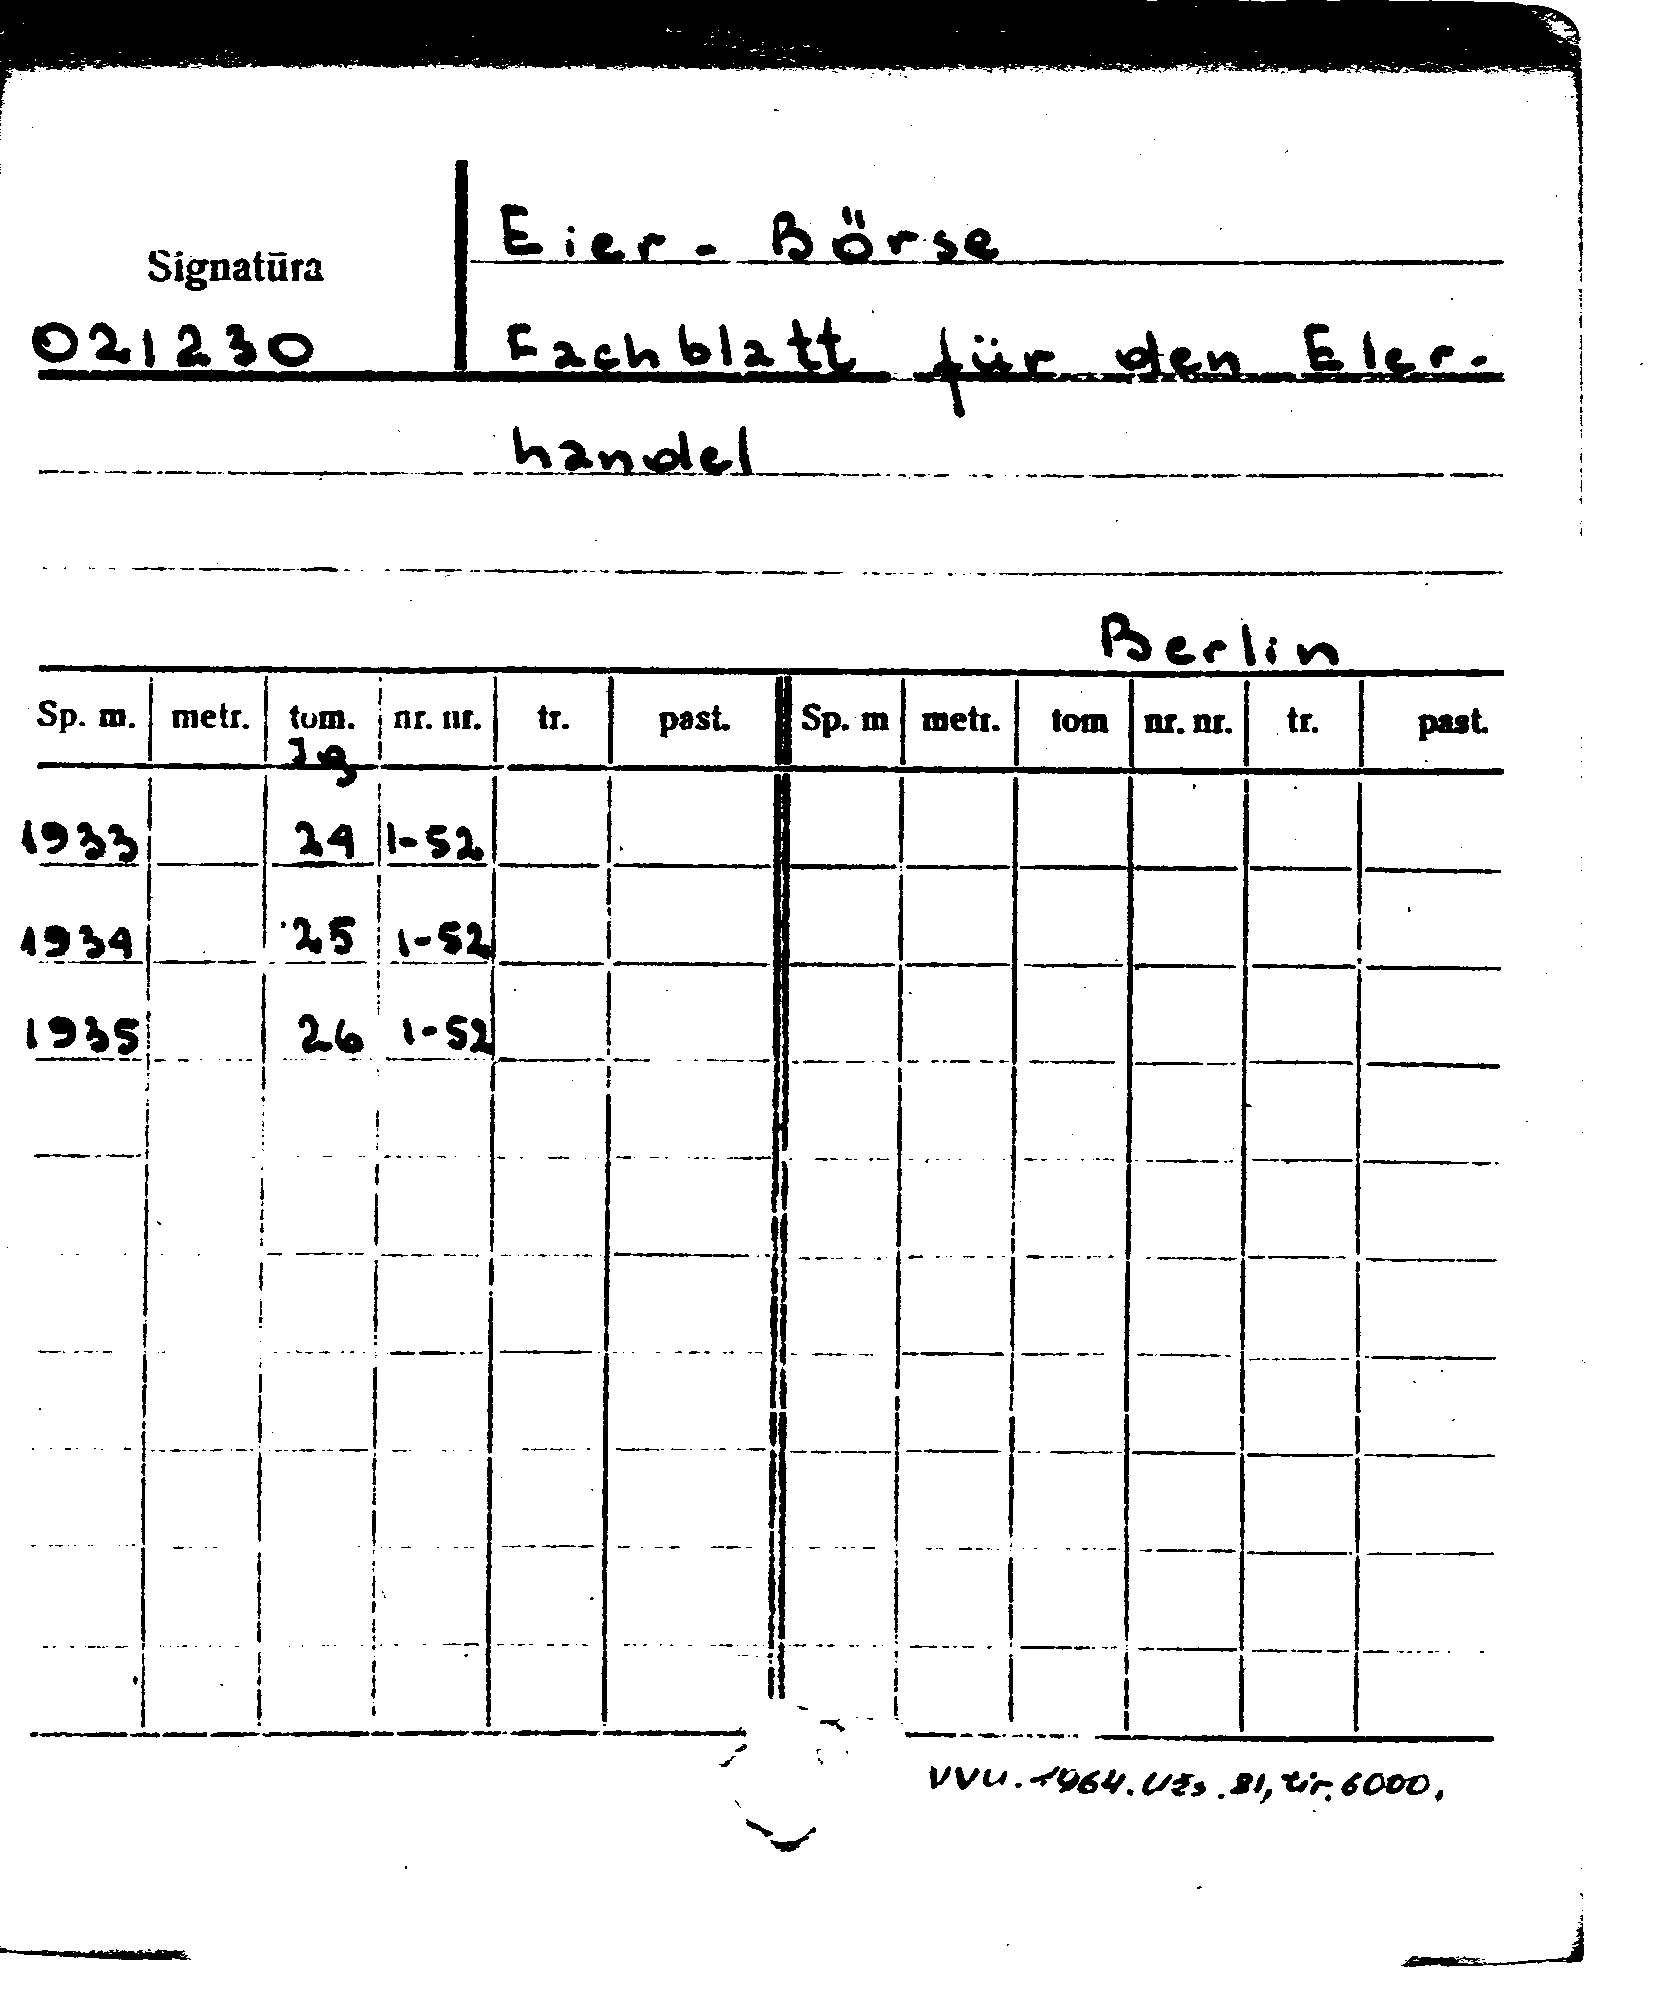 Eier-Börse
Signatūra
021230 Fachblatt für den Eier-
handel
Berlin
Sp. m. metr. tom. nr. nr. tr. past. Sp. m metr. tom nr. nr. tr. past.
Jg
1933 24 1-52
1934 25 1-52
1935 26 1-52
VVU. 1964. Užs. 81, tir. 6000.